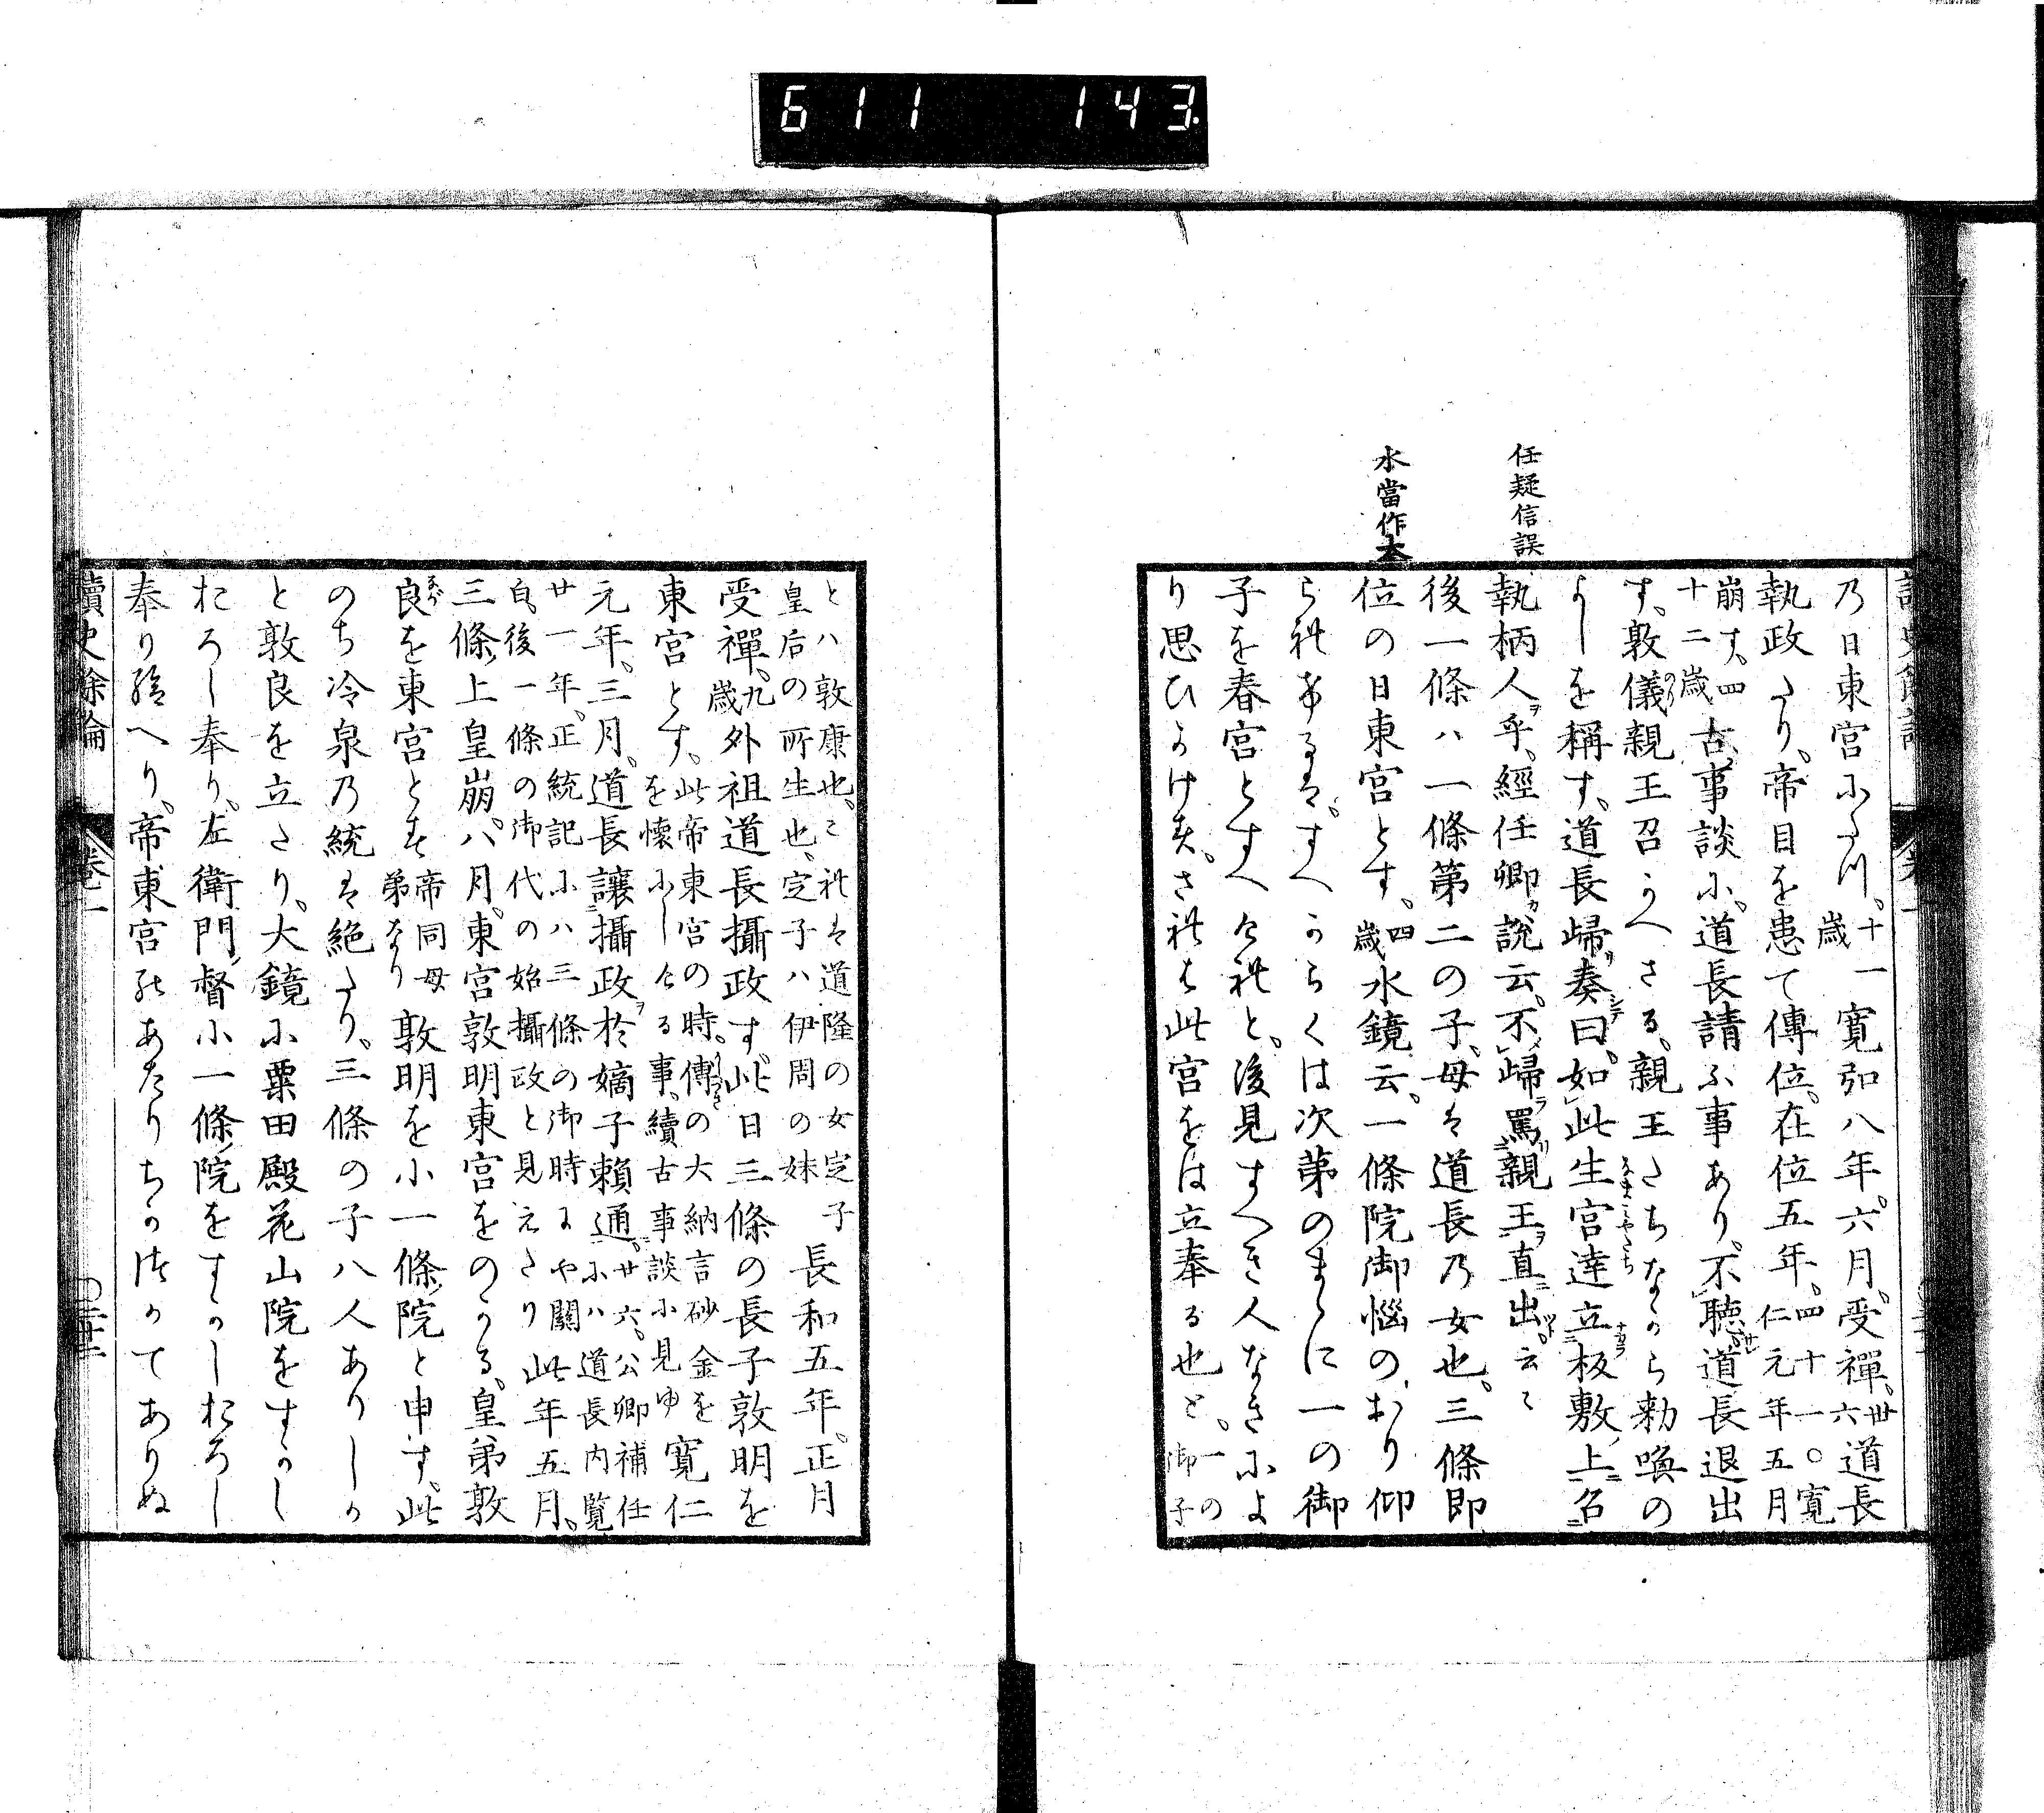 611 143
任疑信誤
水當作大
乃日東宮にたつ。十一歳 寛弘八年。六月。受禪。卅六 道長
執政たり。帝目を患て傳位。在位五年。四十一。○寛仁元年五月
崩す。四十二歳 古事談に。道長請ふ事あり。不聽。道長退出
す。敦儀親王召かへさる。親王たちなから勅喚の
よしを稱す。道長歸奏曰。如此生宮達立板敷上召
執柄人乎。經任卿説云。不歸罵親王直出。云々
後一條ハ一條第二の子。母は道長乃女也。三條即
位の日東宮とす。四歳 水鏡云。一條院御惱のおり仰
られけるは。すへからくは次第のまゝに一の御
子を春宮とすへけれと。後見すへき人なきによ
り思ひかけす。され は此宮をは立奉る也と。一の御子
とハ敦康也。これは道隆の女定子
皇后の所生也。定子ハ伊周の妹 長和五年。正月
受禪。九歳 外祖道長攝政す。此日三條の長子敦明を
東宮とす。此帝東宮の時。傅の大納言砂金を
を懷にしける事。續古事談に見ゆ 寛仁
元年。三月。道長讓攝政於嫡子頼通。廿六。公卿補任にハ道長内覽
廿一年。正統記にハ三條の御時にや關
白。後一條の御代の始攝政と見えたり 此年五月。
三條上皇崩。八月。東宮敦明東宮をのかる。皇弟敦
良を東宮とす 帝同母弟なり 敦明を小一條院と申す。此
のち冷泉乃統は絶たり。三條の子八人ありしか
と敦良を立たり。大鏡に粟田殿花山院をすかし
おろし奉り。左衛門督小一條院をすかしおろし
奉り給へり。帝東宮のあたりちかつかてありぬ
讀史餘論 卷一